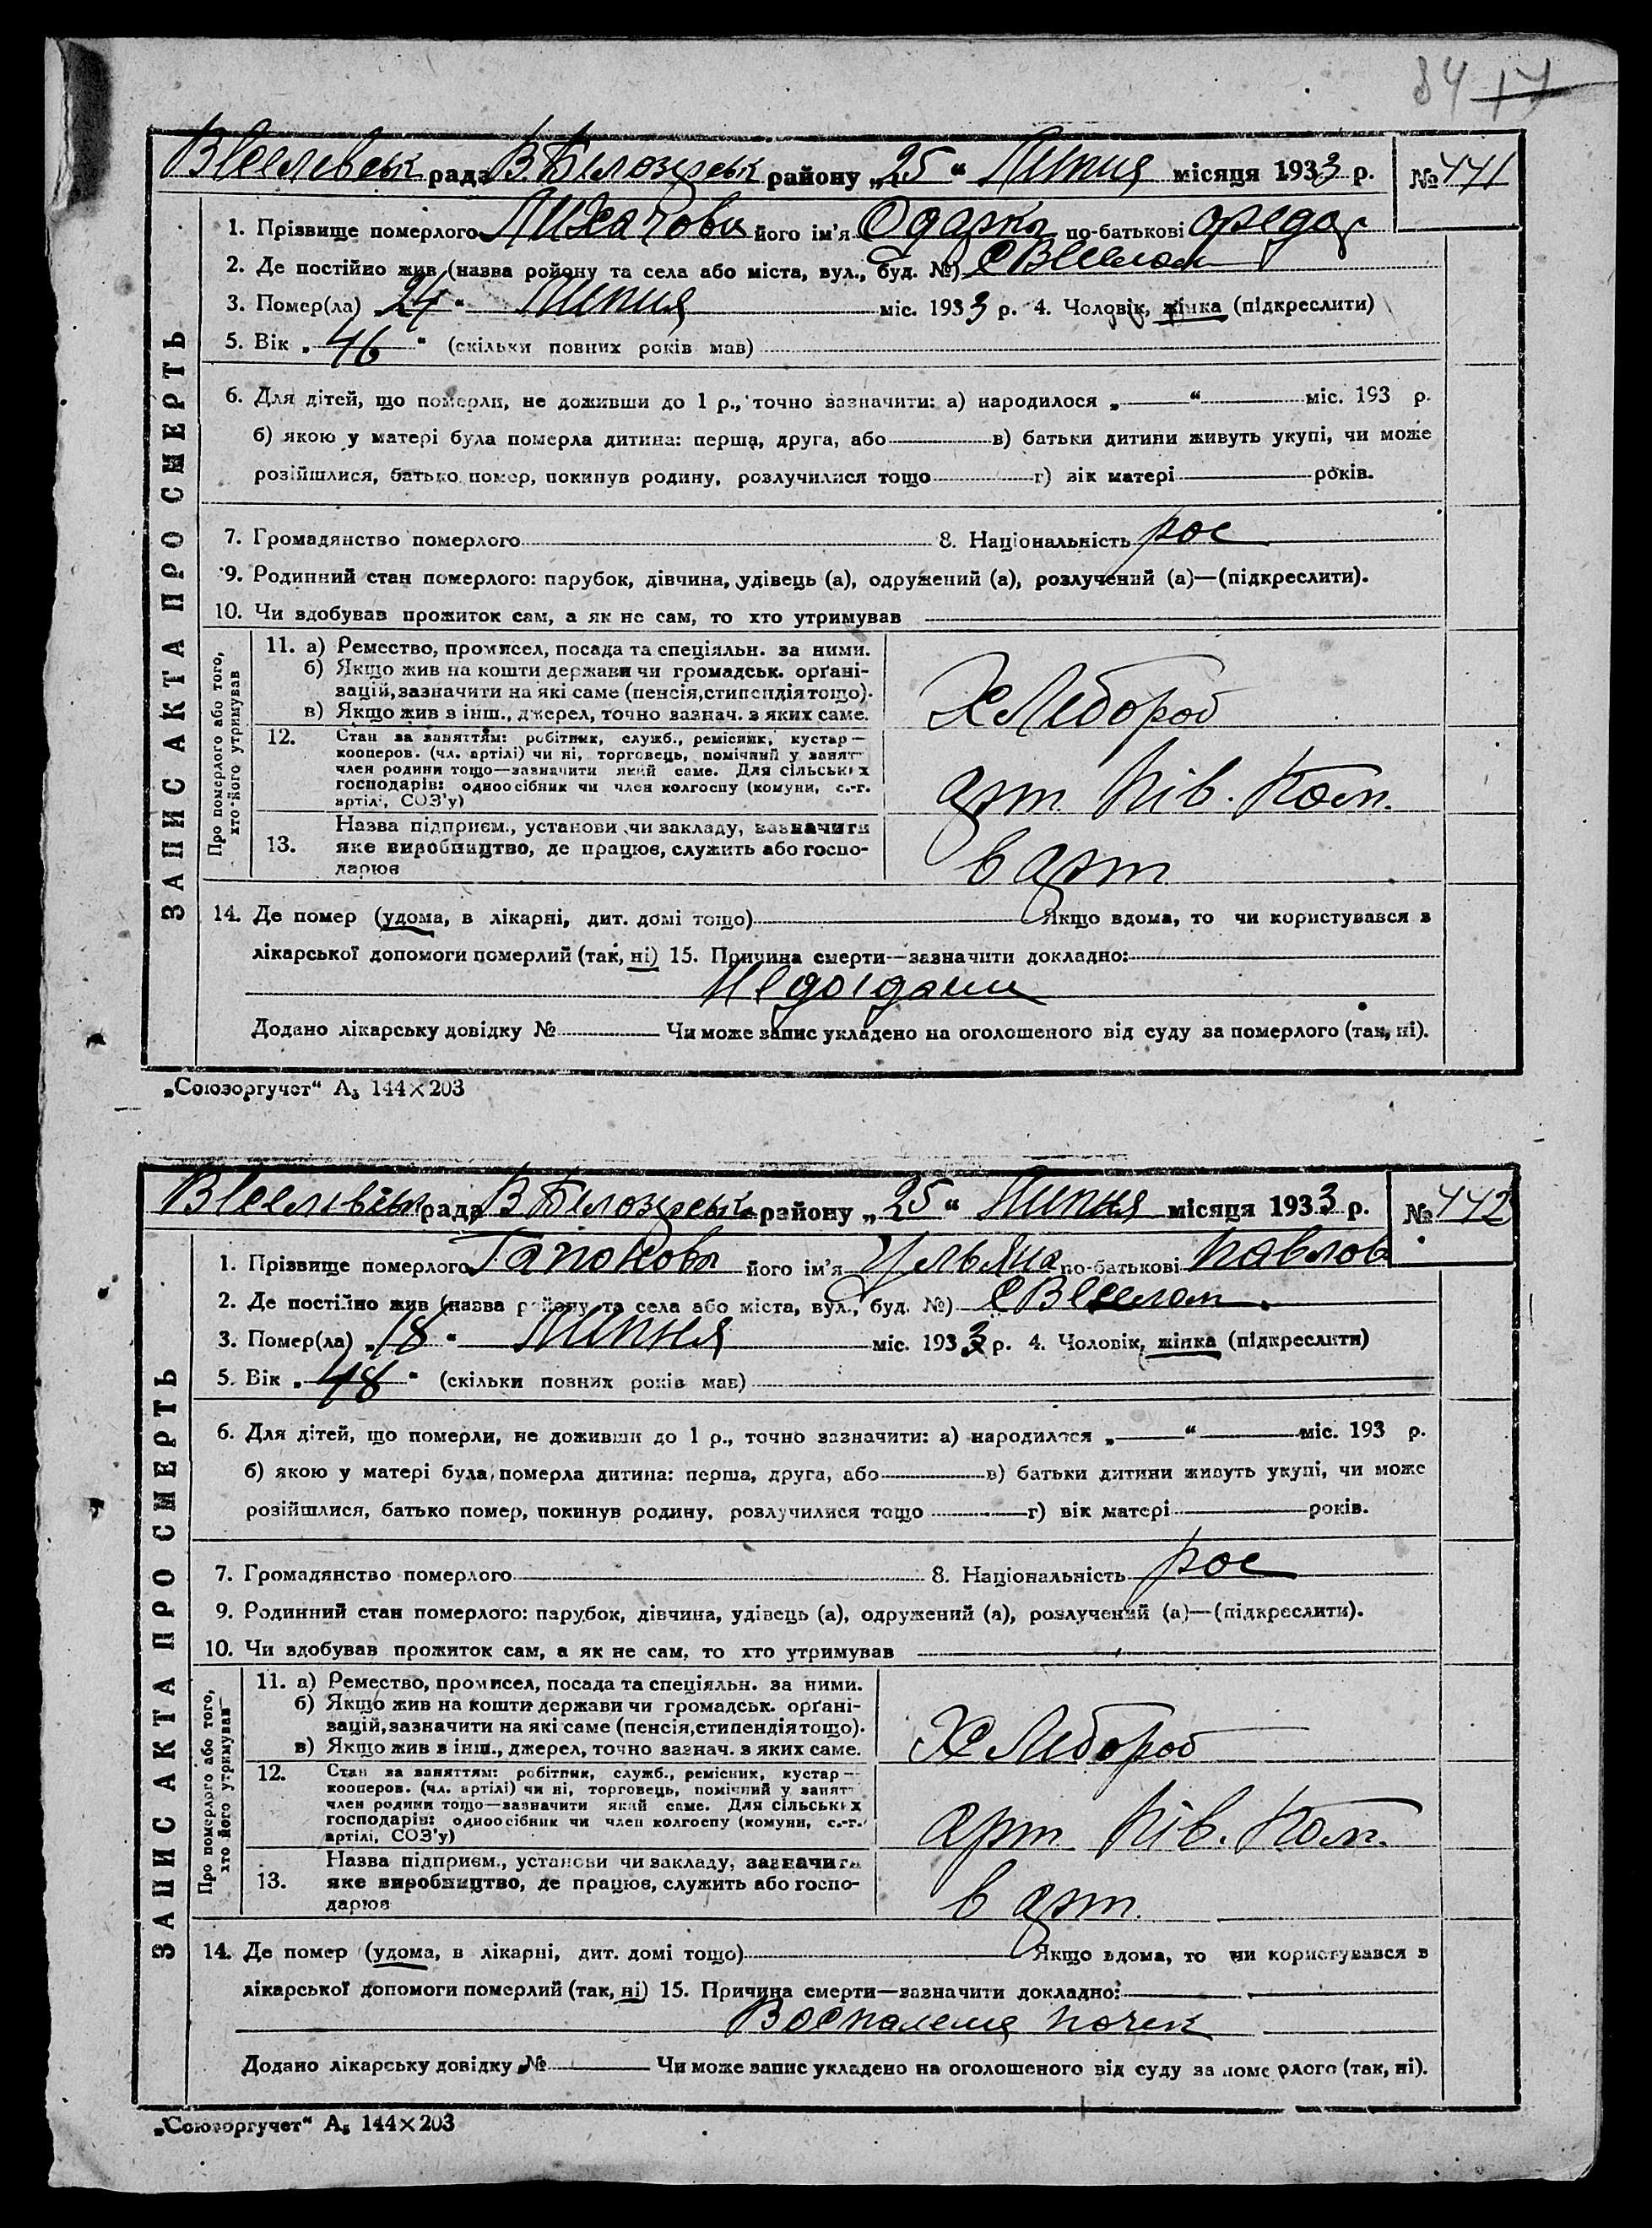 84 17
Веселівськ рада В. Білозерськ району „25“ Липня місяця 1933 р. № 441
1. Прізвище померлого Лихачова його ім'я Одарка по-батькові Федор
2. Де постійно жив (назва району та села або міста, вул., буд. №) с Веселом
3. Помер(ла) „24“ Липня міс. 1933 р. 4. Чоловік, жінка (підкреслити)
5. Вік „46“ (скільки повних років мав)
6. Для дітей, що померли, не доживши до 1 р., точно зазначити: а) народилося „ “ міс. 193 р.
б) якою у матері була померла дитина: перша, друга, або в) батьки дитини живуть укупі, чи може
розійшлися, батько помер, покинув родину, розлучилися тощо г) вік матері років.
7. Громадянство померлого 8. Національність рос
9. Родинний стан померлого: парубок, дівчина, удівець (а), одружений (а), розлучений (а)—(підкреслити).
10. Чи здобував прожиток сам, а як не сам, то хто утримував
ЗАПИС АКТА ПРО СМЕРТЬ
Про померлого або того,
хто його утримував
11. а) Ремество, промисел, посада та спеціяльн. за ними.
б) Якщо жив на кошти держави чи громадськ. орґані-
зацій, зазначити на які саме (пенсія, стипендія тощо).
в) Якщо жив з інш., джерел, точно зазнач. з яких саме.
Хлебороб
12. Стан за заняттям: робітник, служб., ремісник, кустар—
кооперов. (чл. артілі) чи ні, торговець, помічний у занят
член родини тощо—зазначити який саме. Для сільських
господарів: одноосібник чи член колгоспу (комуни, с.-г.
артілі, СОЗ'у)
арт. Пів. Ком.
Назва підприєм., установи чи закладу, зазначити
13. яке виробництво, де працює, служить або госпо-
дарює
в арт
14. Де помер (удома, в лікарні, дит. домі тощо) Якщо вдома, то чи користувався з
лікарської допомоги померлий (так, ні) 15. Причина смерти—зазначити докладно:
Недоїдани
Додано лікарську довідку № Чи може запис укладено на оголошеного від суду за померлого (так, ні).
„Союзоргучет“ А₅ 144×203
Веселівськ рада В Білозерськ району „25“ Липня місяця 1933 р. № 442
1. Прізвище померлого Гапонова його ім'я Ульяна по-батькові Павлов
2. Де постійно жив (назва району та села або міста, вул., буд. №) с Веселом
3. Помер(ла) „18“ Липня міс. 1933 р. 4. Чоловік, жінка (підкреслити)
5. Вік „48“ (скільки повних років мав)
6. Для дітей, що померли, не доживши до 1 р., точно зазначити: а) народилося „ “ міс. 193 р.
б) якою у матері була померла дитина: перша, друга, або в) батьки дитини живуть укупі, чи може
розійшлися, батько помер, покинув родину, розлучилися тощо г) вік матері років.
7. Громадянство померлого 8. Національність рос
9. Родинний стан померлого: парубок, дівчина, удівець (а), одружений (а), розлучений (а)—(підкреслити).
10. Чи здобував прожиток сам, а як не сам, то хто утримував
ЗАПИС АКТА ПРО СМЕРТЬ
Про померлого або того,
хто його утримував
11. а) Ремество, промисел, посада та спеціяльн. за ними.
б) Якщо жив на кошти держави чи громадськ. орґані-
зацій, зазначити на які саме (пенсія, стипендія тощо).
в) Якщо жив з інш., джерел, точно зазнач. з яких саме.
Хлебороб
12. Стан за заняттям: робітник, служб., ремісник, кустар—
кооперов. (чл. артілі) чи ні, торговець, помічний у занят
член родини тощо—зазначити який саме. Для сільських
господарів: одноосібник чи член колгоспу (комуни, с.-г.
артілі, СОЗ'у)
арт Пів. Ком.
Назва підприєм., установи чи закладу, зазначити
13. яке виробництво, де працює, служить або госпо-
дарює
в арт.
14. Де помер (удома, в лікарні, дит. домі тощо) Якщо вдома, то чи користувався з
лікарської допомоги померлий (так, ні) 15. Причина смерти—зазначити докладно:
Воспаления почек
Додано лікарську довідку № Чи може запис укладено на оголошеного від суду за померлого (так, ні).
„Союзоргучет“ А₅ 144×203